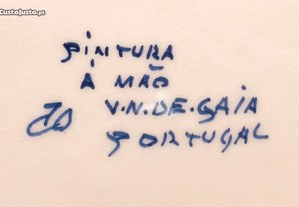 CustoJusto.pt
PINTURA
À MÃO
V.N.DE.GAIA
PORTUGAL